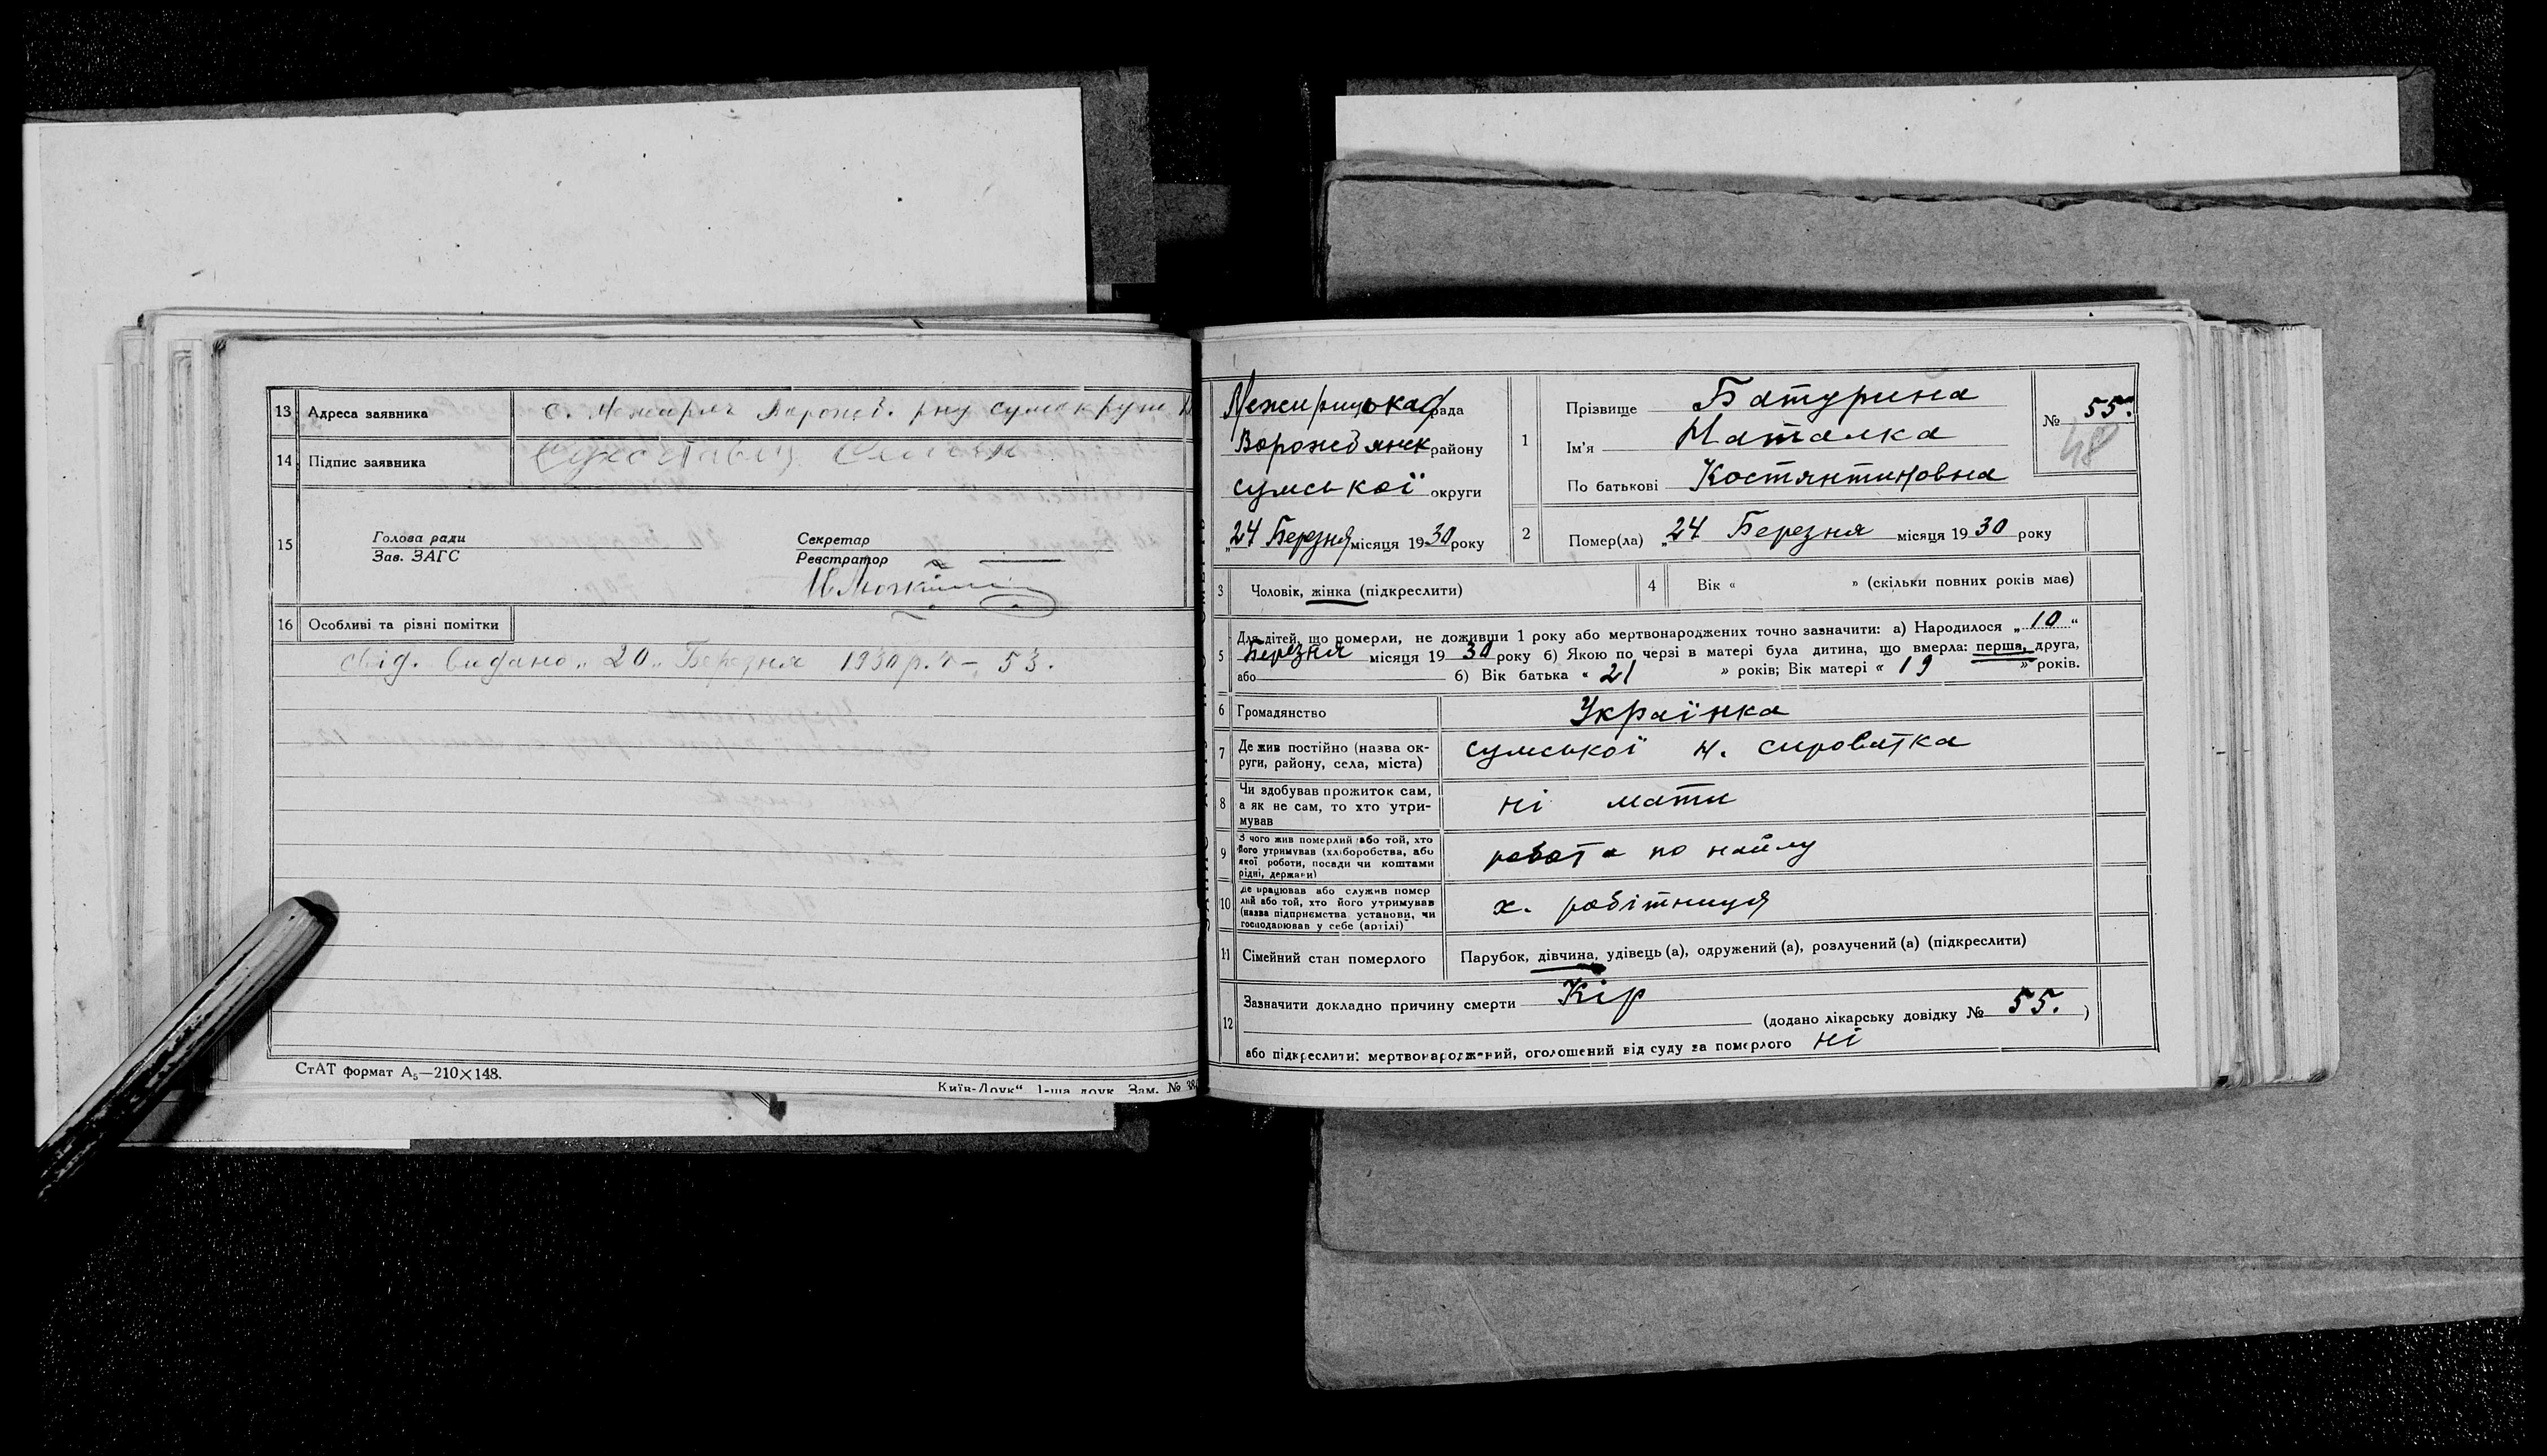 13 Адреса заявника с. Межиріч Ворожб. р-ну сумск округи
14 Підпис заявника
15
Голова ради Секретар
Зав. ЗАГС Реєстратор
16 Особливі та різні помітки
свід. видано „20„ Березня 1930 р. ч – 53.
СтАТ формат А₅—210×148.
Київ-Друк“ 1-ша друк. Зам. №
Межирицька рада
Ворожбянск району
сумської округи
„24 Березня місяця 1930 року
1 Прізвище Батурина
Ім'я Наталка
По батькові Костянтиновна
№ 55.
48
2 Помер(ла) „24 Березня місяця 1930 року
3 Чоловік, жінка (підкреслити)
4 Вік « » (скільки повних років має)
5 Для дітей, що померли, не доживши 1 року або мертвонароджених точно зазначити: а) Народилося „10“
Березня місяця 1930 року б) Якою по черзі в матері була дитина, що вмерла: перша, друга,
або б) Вік батька « 21 » років; Вік матері « 19 » років.
6 Громадянство Українка
7 Де жив постійно (назва ок-
руги, району, села, міста) сумської н. сироватка
8 Чи здобував прожиток сам,
а як не сам, то хто утри-
мував ні мати
9 З чого жив померлий або той, хто
його утримував (хліборобства, або
якої роботи, посади чи коштами
рідні, держави) робота по найму
10 Де працював або служив помер
лий або той, хто його утримував
(назва підприємства установи, чи
господарював у себе (артілі) х. робітниця
11 Сімейний стан померлого Парубок, дівчина, удівець (а), одружений (а), розлучений (а) (підкреслити)
12 Зазначити докладно причину смерти Кір
(додано лікарську довідку № 55. )
або підкреслити: мертвонароджений, оголошений від суду за померлого ні